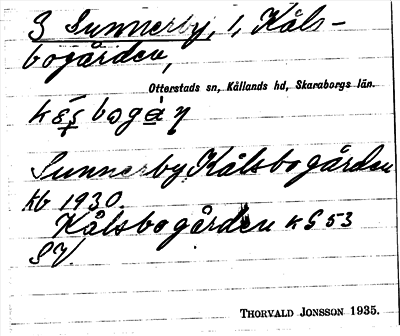 3 Sunnerby, 1, Kåls-
bogården,
Otterstads sn, Kållands hd, Skaraborgs län.
Sunnerby Kålsbogården
kb 1930.
Kålsbogården KG 53
SV.
THORVALD JONSSON 1935.